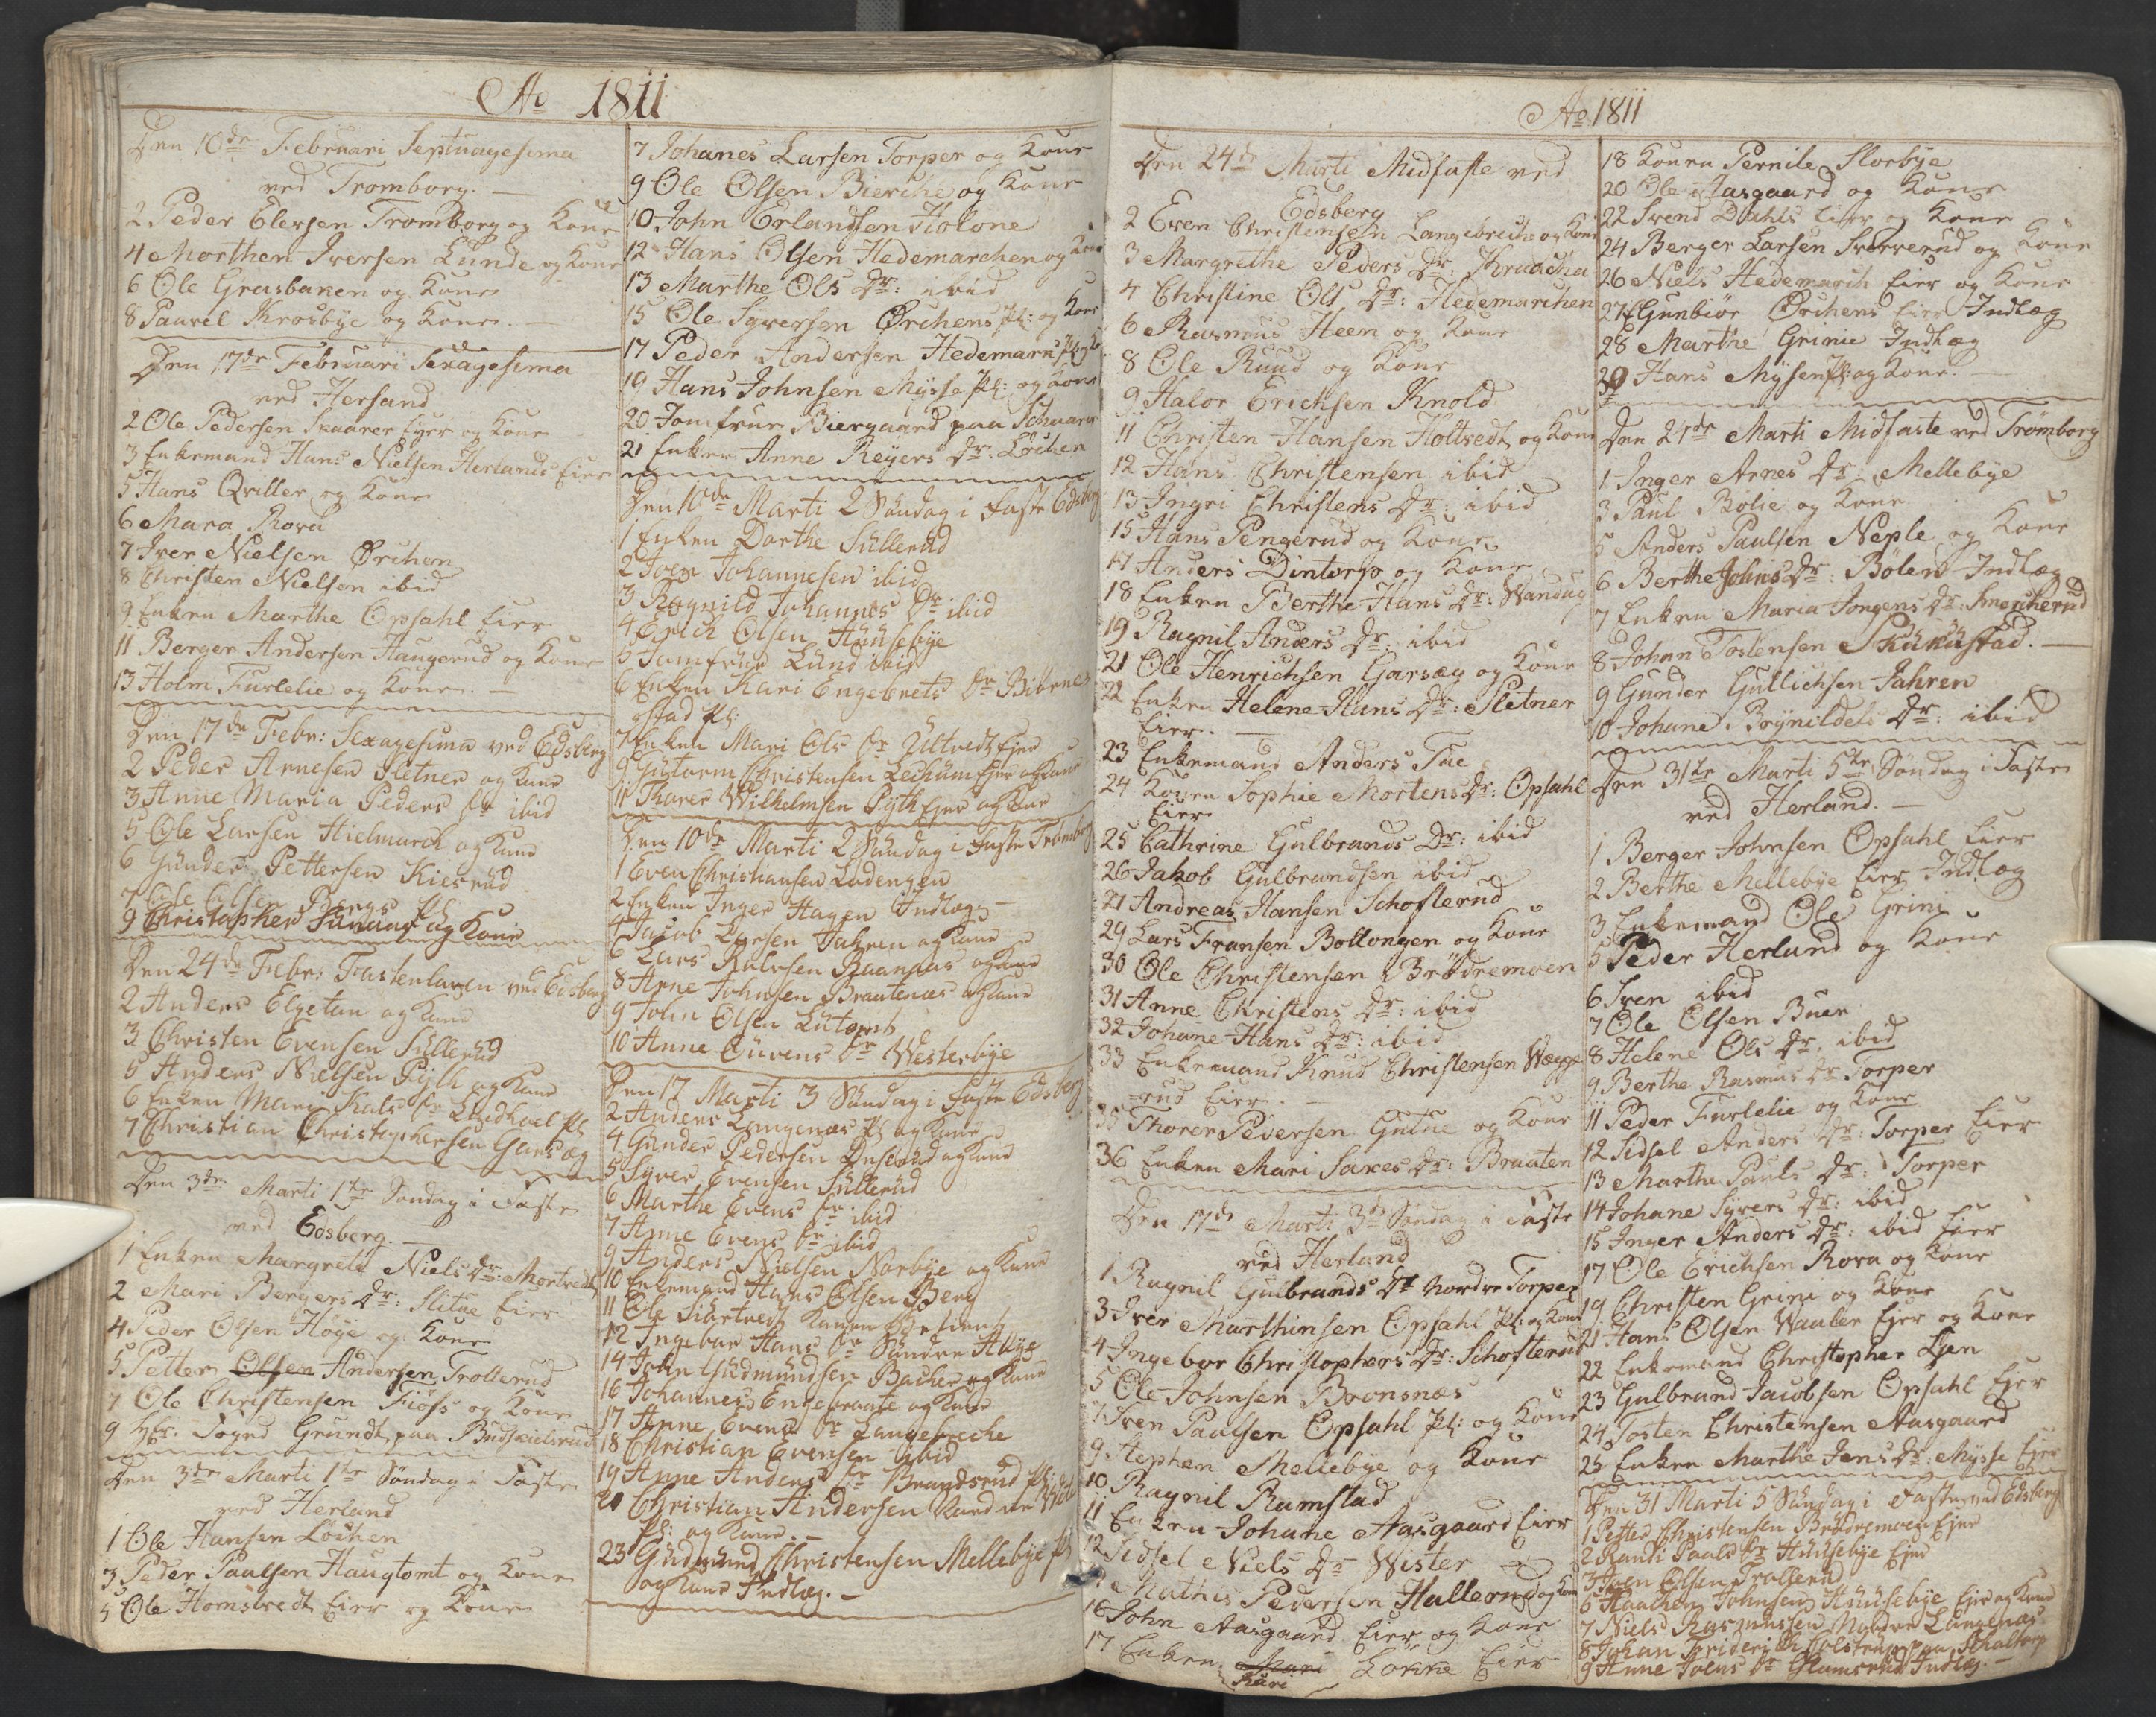 Ao 1811
Den 10de Februari Septuagesima
ved Tromborg.
2 Peder Elersen Tromborg og Kone
4 Morthen Iversen Lunde og Kone
6 Ole Grasbaken og Kone
8 Pauvel Krosbye og Kone.
Den 17de Februari Sexagesima
ved Herland
2 Ole Pedersen Skaarer Eyer og Kone
3 Enkemand Hans Nielsen Herlands Eier
5 Hans Qviller og Kone
6 Mara Rova
7 Iver Nielsen Ørchen
8 Christen Nielsen ibid
9 Enken Marthe Opsahl Eier
11 Berger Andersen Haugerud og Kone
13 Holm Furlelie og Kone.
Den 17de Febr: Sexagesima ved Edsberg
2 Peder Arnesen Sletner og Kone
3 Anne Maria Peders Dr ibid
5 Ole Larsen Hielmarck og Kone
6 Gunder Pettersen Kierud
7 Ole Olsen Bergs Pl
9 Christopher og Kone
Den 24de Febr: Fastenlaven ved Edsberg
2 Anders Elgetun og Kone
3 Christen Evensen Süllerud
5 Anders Nielsen Pÿth og Kone
6 Enken Mari Kals Dr Pl
7 Christian Christophersen Garsæg
Den 3de Marti 1ste Søndag i Faste
ved Edsberg.
1 Enken Margrete Niels Dr: Mortvedt
2 Mari Bergers Dr: Slitue Eier
4 Peder Olsen Høye og Kone
5 Petter Olsen Andersen Trollerud
7 Ole Christensen Fiøss og Kone
9 Hr. Foged Grundt paa
Den 3de Marti 1te Søndag i Faste
ved Herland
1 Ole Hansen Löchen
3 Peder Paulsen Haugtomt og Kone
5 Ole Homstvedt Eier og Kone
7 Johanes Larsen Torper og Kone
9 Ole Olsen Bierche og Kone
10 John Erlandsen Kolone
12 Hans Olsen Hedemarchen og Kone
13 Marthe Ols Dr: ibid
15 Ole Syversen Ørchens Pl: og Kone
17 Peder Andersen Hedemark Pl og
19 Hans Johnsen Mysse Pl: og Kone
20 Jomfrue Biergaard paa
21 Enken Anne Reyers Dr: Löchen
Den 10de Marti 2 Søndag i Faste Edsberg
1 Enken Dorthe Süllerüd
2 Joen Johannesen ibid
3 Rognild Johannes Dr ibid
4 Erich Olsen Huusebye
5 Jomfrue Lund ibid
6 Enken Kari Engebrets Dr Biørne
stad Pl:
7 Enken Mari Ols Dr Ültvedt Ejer
9 Gutorm Christensen Lechum Ejer og Kone
11 Tharer Wilhelmsen Pÿth Ejer og Kone
Den 10de Marti 2 Søndag i Faste Tromborg
1 Even Christiansen Ladengen
2 Enken Inger Hagen Indlæg
4 Jacob Larsen Jahren og Kone
6 Lars Kalvsen Raanaas og Kone
8 Arne Johnsen Braatenæs og Kone
9 John Olsen Lütomt
10 Anne Güvens Dr Westerbÿe
Den 17 Marti 3 Søndag i Faste Edsberg
2 Anders Langenæs Pl og Kone
4 Gunder Pedersen og Kone
5 Syver Evensen Süllerüd
6 Marthe Evens Dr ibid
7 Anne Evens Dr ibid
9 Anders Nielsen Norbye og Kone
10 Enkemand Hans Olsen Berg
11 Ole
12 Ingebor Hans Dr Søndre Høye
14 John Gudmundsen Bacher og Kone
16 Johannes Engebraate og Kone
17 Anne Evens Dr Langebreche
18 Christian Evensen ibid
19 Anne Anders Dr Brandsrud Pl:
20 Christian Andersen
Pl: og Kone.
23 Gudmund Christensen Mellebye Pl
og Kone Indlæg.
Ao 1811
Den 24de Marti Midfaste ved
Edsberg
2 Even Christensen Langebreche og Kone
3 Margrethe Peders Dr: Kraacha
4 Christine Ols Dr: Hedemarchen
6 Rasmus Heen og Kone
8 Ole Ruud og Kone
9 Halor Erichsen Knold
11 Christen Hansen Holtvedt og Kone
12 Hans Christensen ibid
13 Ingri Christens Dr: ibid
15 Hans Pengerud og Kone
17 Anders Dintorp og Kone
18 Enken Berthe Hans Dr: Wandug
19 Ragnil Anders Dr: ibid
21 Ole Henrichsen Garsæg og Kone
22 Enken Helene Hans Dr: Sletner
Eier.
23 Enkemand Anders Tue
24 Konen Sophie Mortens Dr: Opsahl
Eier
25 Cathrine Gulbrands Dr: ibid
26 Jakob Gulbrandsen ibid
27 Andreas Hansen Schofterud
29 Lars Fransen Bollongen og Kone
30 Ole Christensen Brødremoen
31 Anne Christens Dr: ibid
32 Johane Hans Dr: ibid
33 Enkemand Knud Christensen Wegge
rud Eier.
35 Thorer Pedersen Gutue og Kone
36 Enken Mari Saxes Dr: Braaten
Den 17de Marti 3de Søndag i Faste
ved Herland
1 Ragnil Gulbrands Dr Nordre Torper
3 Iver Marthinsen Opsahl Pl: og Kone
4 Ingebor Christophers Dr: Schofterud
5 Ole Johnsen Bronsnæs
7 Iven Paulsen Opsahl Pl: og Kone
9 Stephen Mellebye og Kone
10 Ragnil Ramstad
11 Enken Johane Aasgaard Eier
12 Sidsel Niels Dr Wister
Mathis Pedersen Hullerud og Kone
16 John Aasgaard Eier og Kone
17 Enken Mari Løkke Eier
Kari
18 Konen Pernile Slorbye
20 Ole Aasgaard og Kone
22 Svend Dahls Eier og Kone
24 Berger Larsen Sververud og Kone
26 Niels Hedemarch Eier og Kone
27 Gunbiør Ørchens Eier Indlæg
28 Marthe Grinie Indlæg
30 Hans Mysen Pl: og Kone.
Den 24de Marti Midfaste ved Trømborg
1 Inger Arnes Dr: Mellebye
3 Paul Bolie og Kone
5 Anders Paulsen Neple og Kone
6 Berthe Johns Dr: Bölen Indlæg
7 Enken Maria Jongens Dr: Smerkerud
8 Johan Tostensen
9 Gunder Gullichsen Jahren
10 Johane Brynildels Dr: ibid
Den 31te Marti 5te Søndag i Faste
ved Herland.
1 Berger Johnsen Opsahl Eier
2 Berthe Mellebye Eier Indlæg
3 Enkemand Ole Grini
5 Peder Herland og Kone
6 Iven ibid
7 Ole Olsen Buer
8 Helene Ols Dr: ibid
9 Berthe Rasmus Dr Torper
11 Peder Furlelie og Kone
12 Sidsel Anders Dr: Torper Eier
13 Marthe Pauls Dr: Torper
14 Johane Syvers Dr: ibid
15 Inger Anders Dr: ibid Eier
17 Ole Erichsen Rova og Kone
19 Christen Grini og Kone
21 Hans Olsen Vauler Ejer og Kone
22 Enkemand Christopher Lien
23 Gulbrand Jacobsen Opsahl Ejer
24 Tosten Christensen Aasgaard
25 Enken Marthe Jens Dr: Mysse Ejer
Den 31 Marti 5 Søndag i Faste ved Edsberg
1 Petter Christensen Brødremoen Ejer
2 Randi Pauls Dr Huusebye Ejer
3 Joen Olsen Trollerud
6 Haachen Johnsen Huusebye Ejer og Kone
7 Niels Rasmussen Nordre Langenæs
8 Johan Frideri Holstrup paa
9 Anne Joens Dr Glamsrud Indlæg.